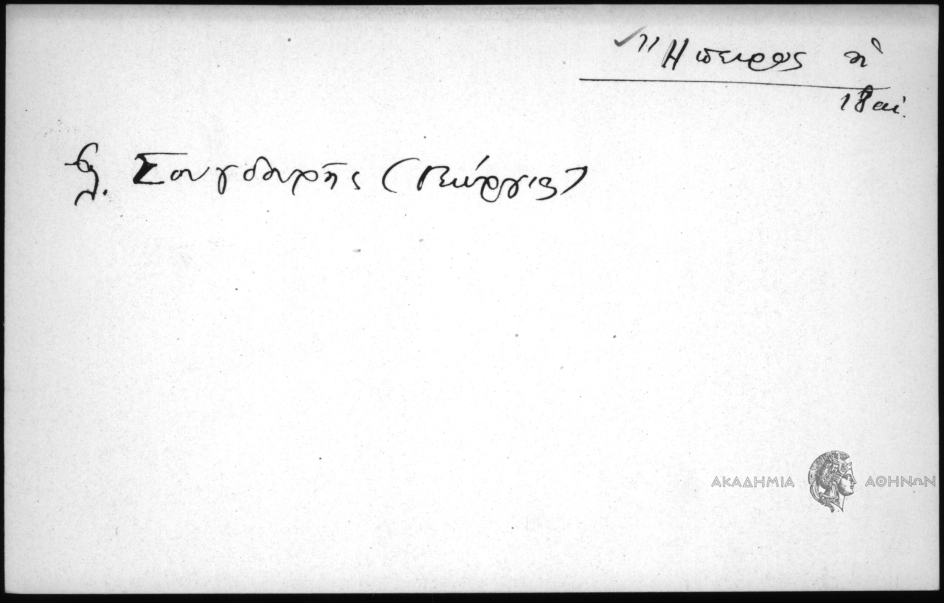 Ἤπειρος ἡ
18 αἰ.
βλ. Σουγδουρῆς (Γεώργιος)
ΑΚΑΔΗΜΙΑ ΑΘΗΝΩΝ